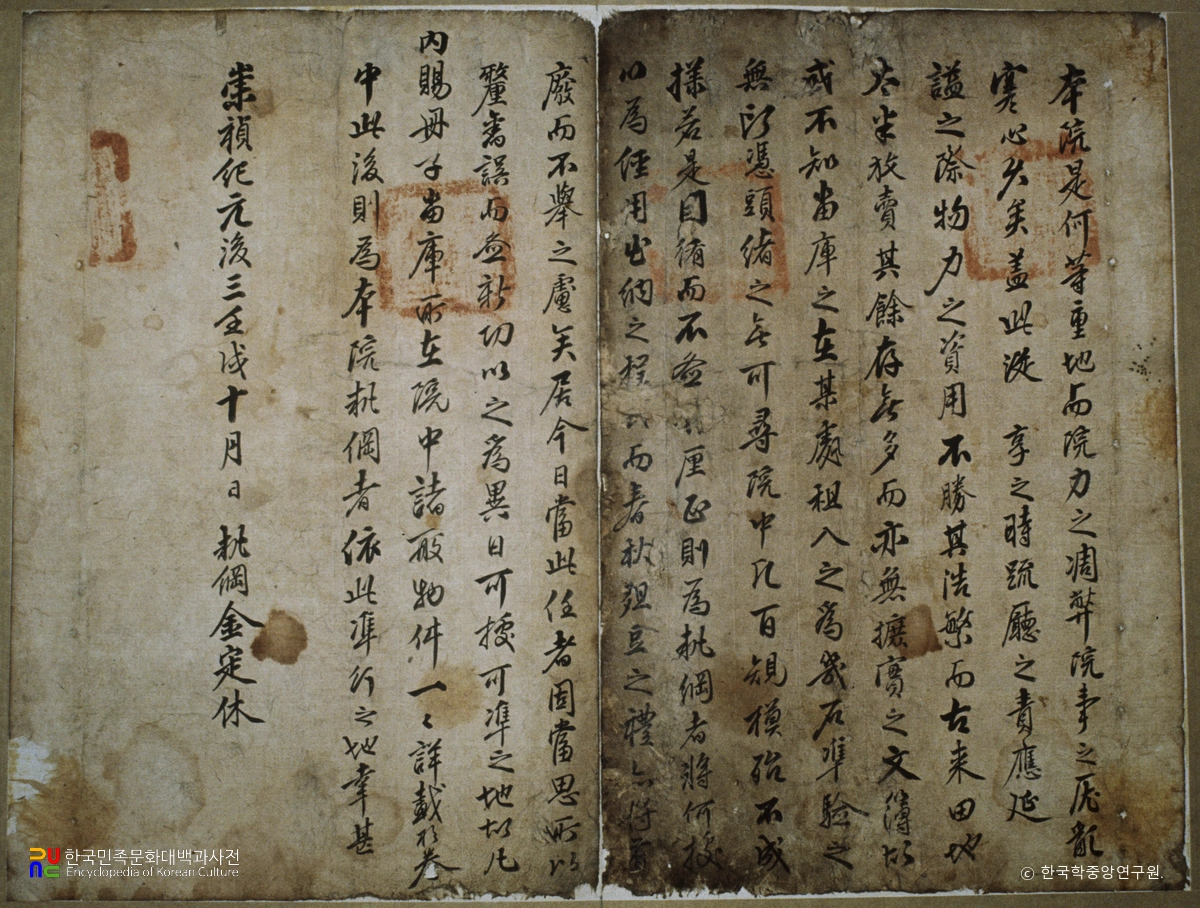 本院是何等重地而院力之凋弊院事之厖龍
寒心久矣盖此涎享之時疏廳之責應延
謚之際物力之資用不勝其浩繁而古来田地
太半放賣其餘存無多而亦無攄實之文簿故
或不知當庫之在某處租入之爲幾石準驗之
無所憑頭緒之無可尋院中凡百規模殆不成
樣若是因循而不釐正則為執綱者將何接
以為經用出納之程而春秋俎豆之禮亦將有
廢而不擧之慮矣居今日當此任者固當思所以
釐舊誤而益新功以之爲異日可據可準之地故凡
內賜冊子當庫所在院中諸般物件一〻詳載於卷
中此後則爲本院執綱者依此準行之地幸甚
崇禎紀元後三壬戌十月日執綱金定休
한국민족문화대백과사전
Encyclopedia of Korean Culture
© 한국학중앙연구원.